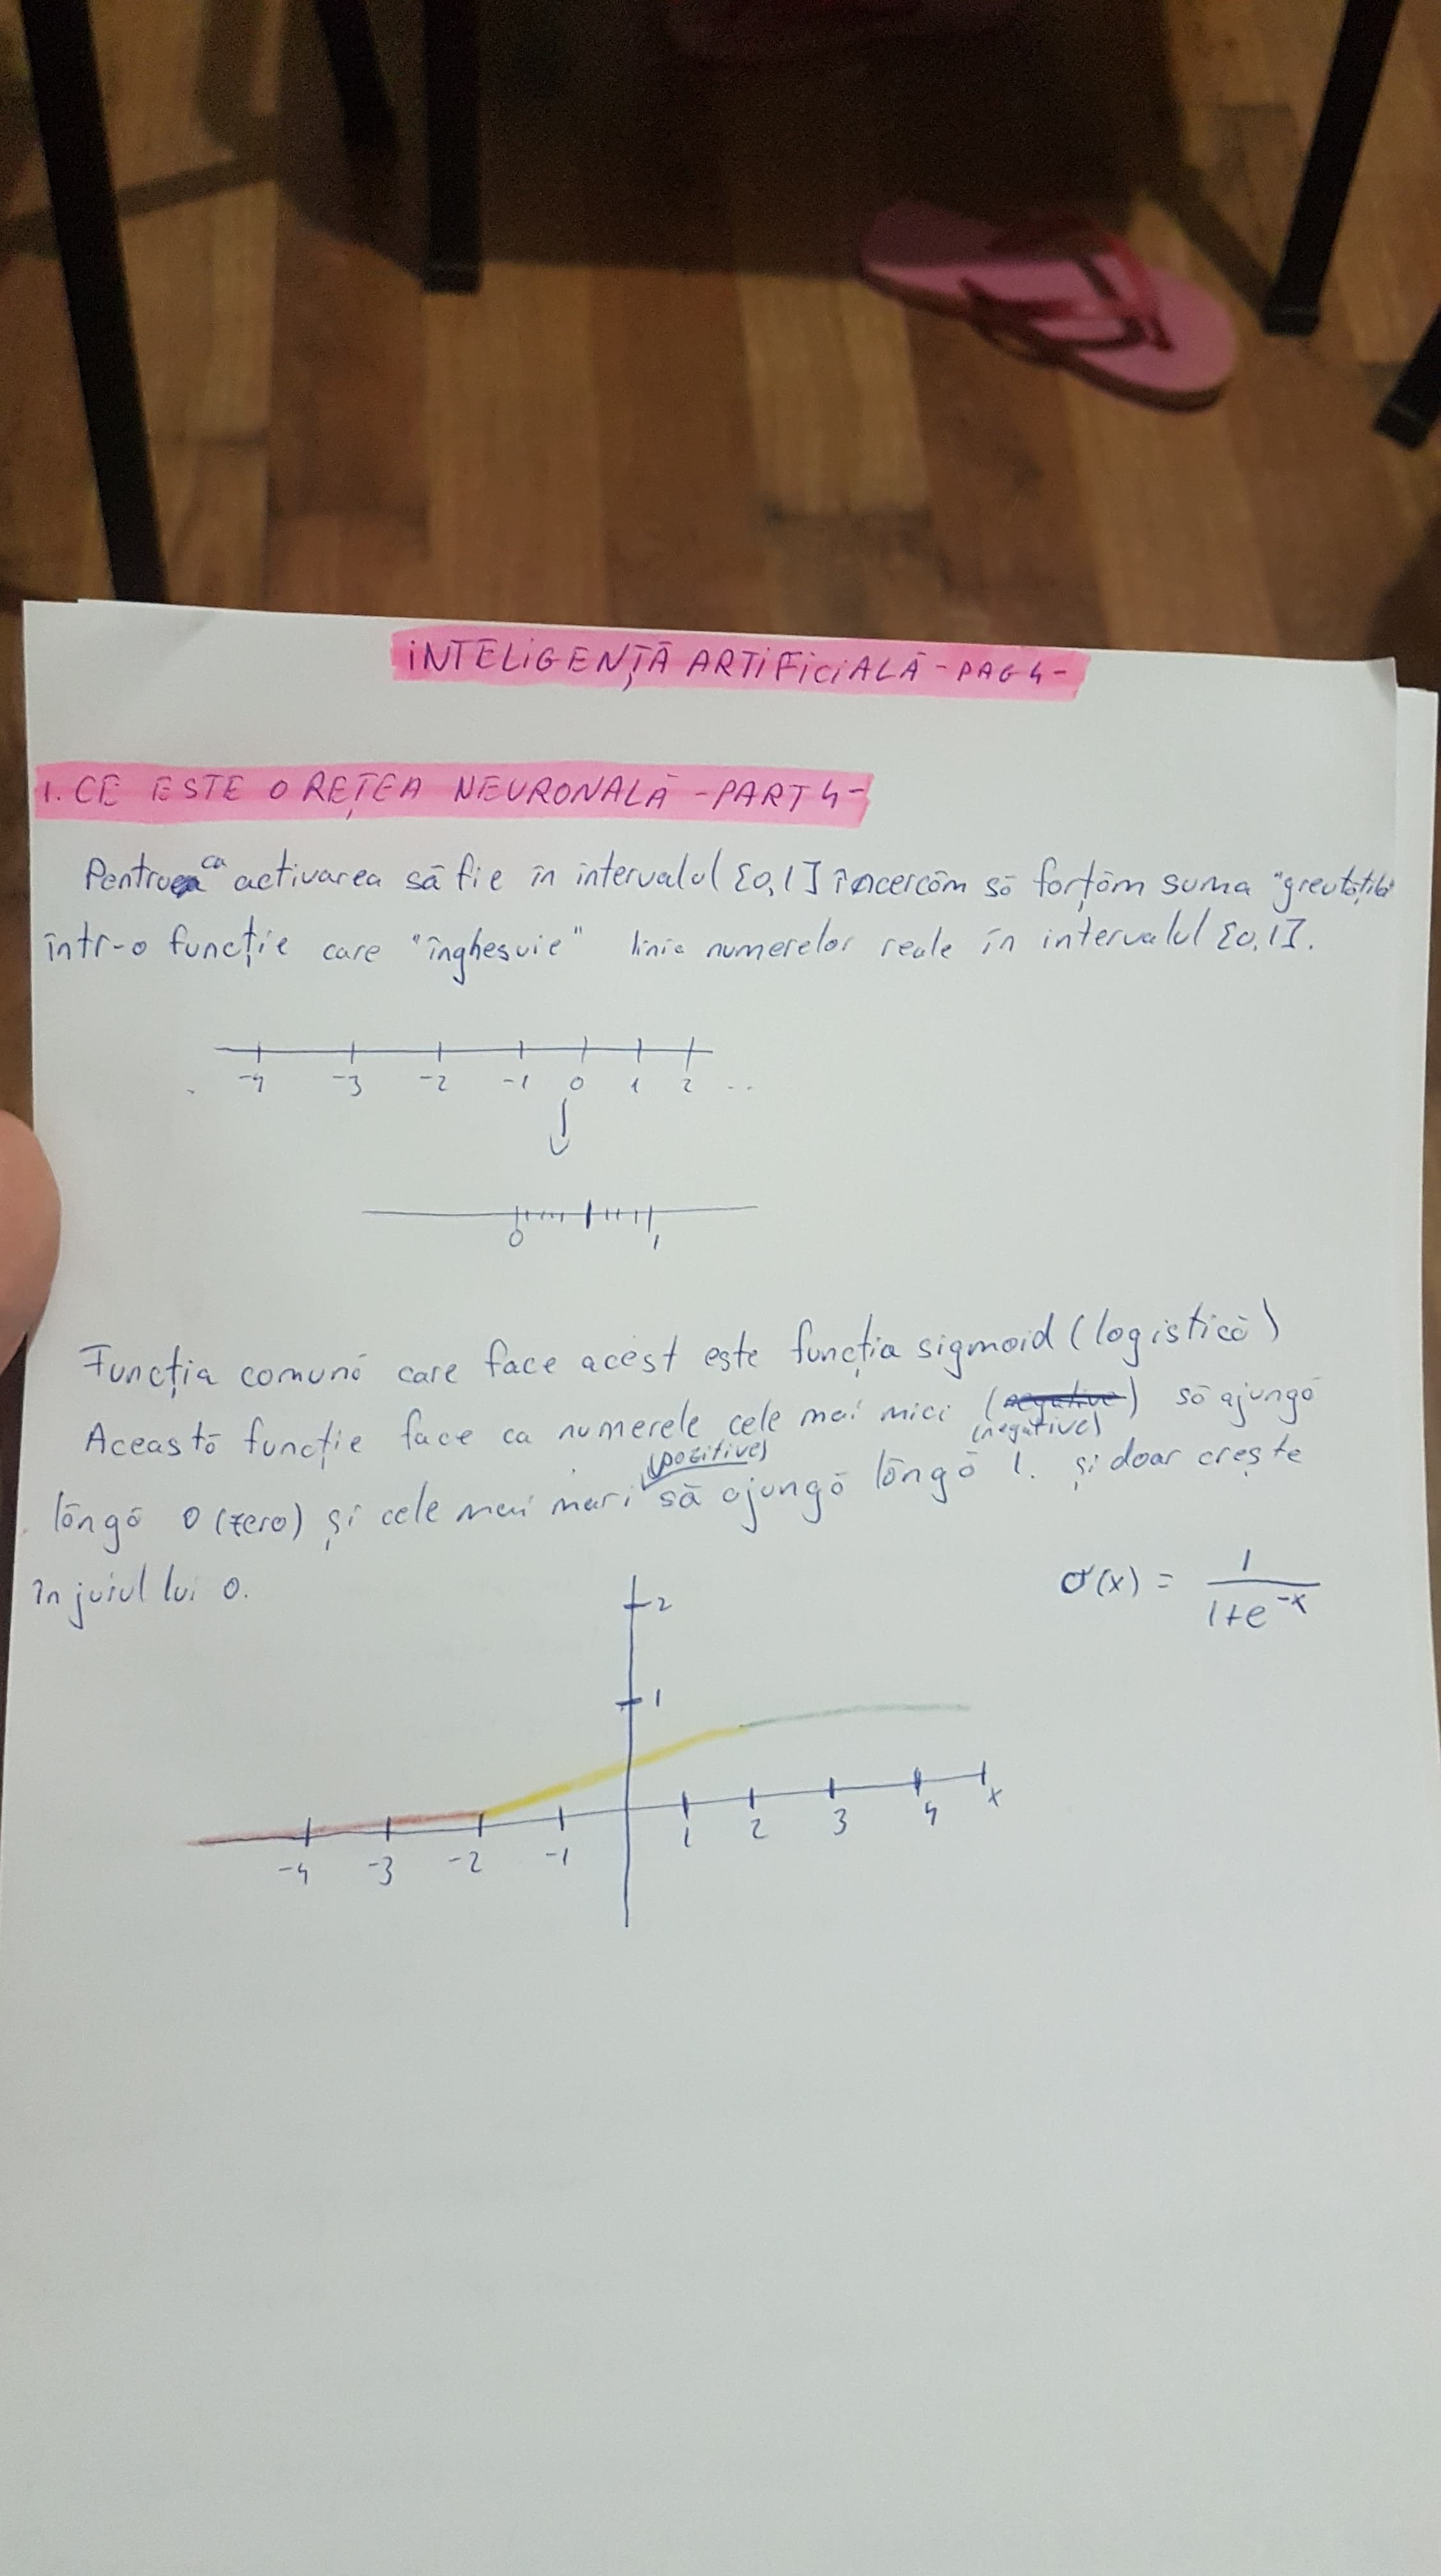 INTELIGENȚĂ ARTIFICIALĂ - PAG 4 -
1. CE ESTE O REȚEA NEURONALĂ - PART 4 -
Pentru ca activarea să fie în intervalul [0,1] încercăm să forțăm suma "greutăților"
într-o funcție care "înghesuie" linia numerelor reale în intervalul [0,1].
-4 -3 -2 -1 0 1 2 ..
0 1
Funcția comună care face acest este funcția sigmoid (logistică)
Această funcție face ca numerele cele mai mici (negative) să ajungă
(negative)
(pozitive)
lângă 0 (zero) și cele mai mari să ajungă lângă 1. și doar crește
în jurul lui 0.
σ(x) = 1 / 1+e^-x
2
1
-4 -3 -2 -1 1 2 3 4 x